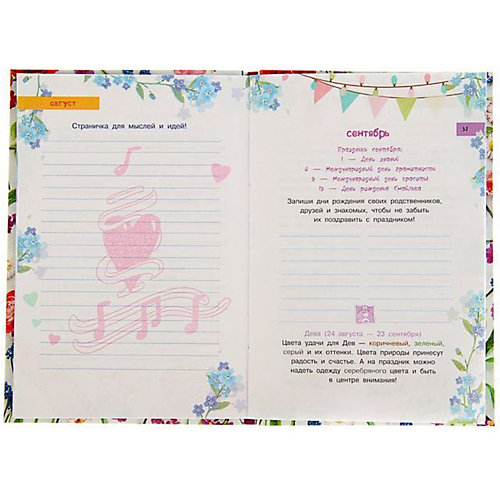 август
Страничка для мыслей и идей!
35
сентябрь
Праздники сентября:
1 — День знаний
8 — Международный день грамотности
9 — Международный день красоты
19 — День рождения Смайлика
Запиши дни рождения своих родственников,
друзей и знакомых, чтобы не забыть
их поздравить с праздником!
Дева (24 августа — 23 сентября)
Цвета удачи для Дев — коричневый, зеленый,
серый и их оттенки. Цвета природы принесут
радость и счастье. А на праздник можно
надеть одежду серебряного цвета и быть
в центре внимания!